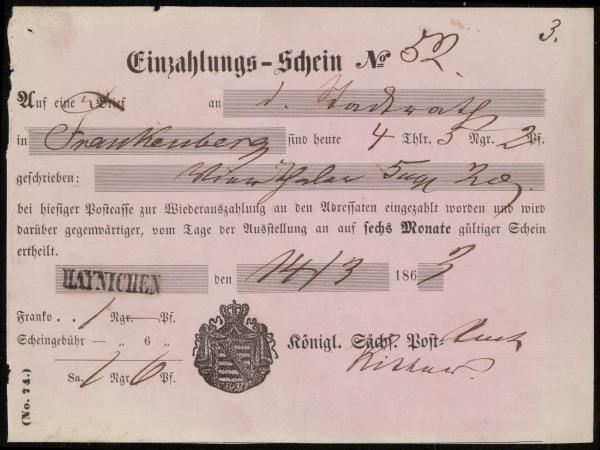 3.
Einzahlungs-Schein No 52.
Auf eine Brief an d. Stadtrath
in Frankenberg sind heute 4 Thlr. 5 Ngr. 2 Pf.
geschrieben: Vier Thaler 5 ngr 2 d.
bei hiesiger Postcasse zur Wiederauszahlung an den Adressaten eingezahlt worden und wird
darüber gegenwärtiger, vom Tage der Ausstellung an auf sechs Monate gültiger Schein
ertheilt.
HAYNICHEN den 14/3 1863
Franko . . 1 Ngr. — Pf.
Scheingebühr — „ 6 „
Sa. 1 Ngr 6 Pf.
Königl. Sächs. Post-Amt
(No. 74.)